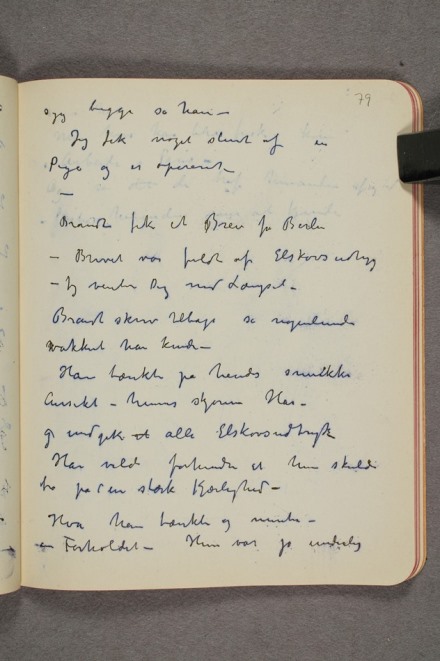 79
og begge sa han –
Jeg fik noget slemt af en
Pige og er opereret –
–
Brandt fik et Brev fra Berlin
– Brevet var fuldt af Elskovsudtryk
– Jeg venter Dig med Længsel –
Brandt skrev tilbage så nogenlunde
vakkert han kunde –
Han tænkte på hendes smukke
Ansikt – hennes skjønne Hår –
og undgik alle Elskovsudtryk
Han vilde forhindre at hun skulde
tro på en stærk Kjærlighed –
Hva han tænkte og mente –
om Forholdet – Hun var jo underlig